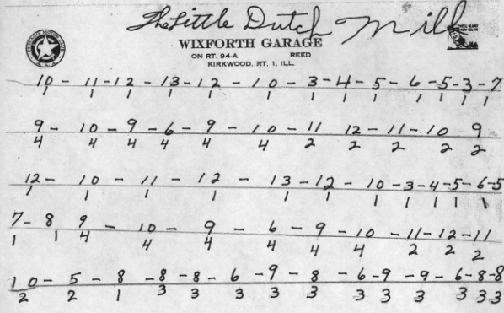 The Little Dutch Mill
WIXFORTH GARAGE
ON RT. 94-A REED
KIRKWOOD, RT. 1, ILL.
10 - 11 - 12 - 13 - 12 - 10 - 3 - 4 - 5 - 6 - 5 - 3 - 7
1 1 1 1 1 1 1 1 1 1 1 1 1
9 - 10 - 9 - 6 - 9 - 10 - 11 12 - 11 - 10 - 9
4 4 4 4 4 4 2 2 2 2 2
12 - 10 - 11 - 12 - 13 - 12 - 10 - 3 - 4 - 5 - 6 - 5
1 1 1 1 1 1 1 1 1 1 1
7 - 8 9 - 10 - 9 - 6 - 9 - 10 - 11 - 12 - 11
1 1 4 4 4 4 4 4 2 2 2
10 - 5 - 8 - 8 - 8 - 6 - 9 - 8 - 6 - 9 - 9 - 6 - 8 - 8
2 2 1 3 3 3 3 3 3 3 3 3 3